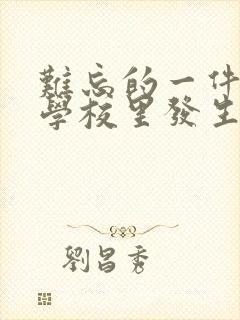 難忘的一件
學校里發生
劉昌秀